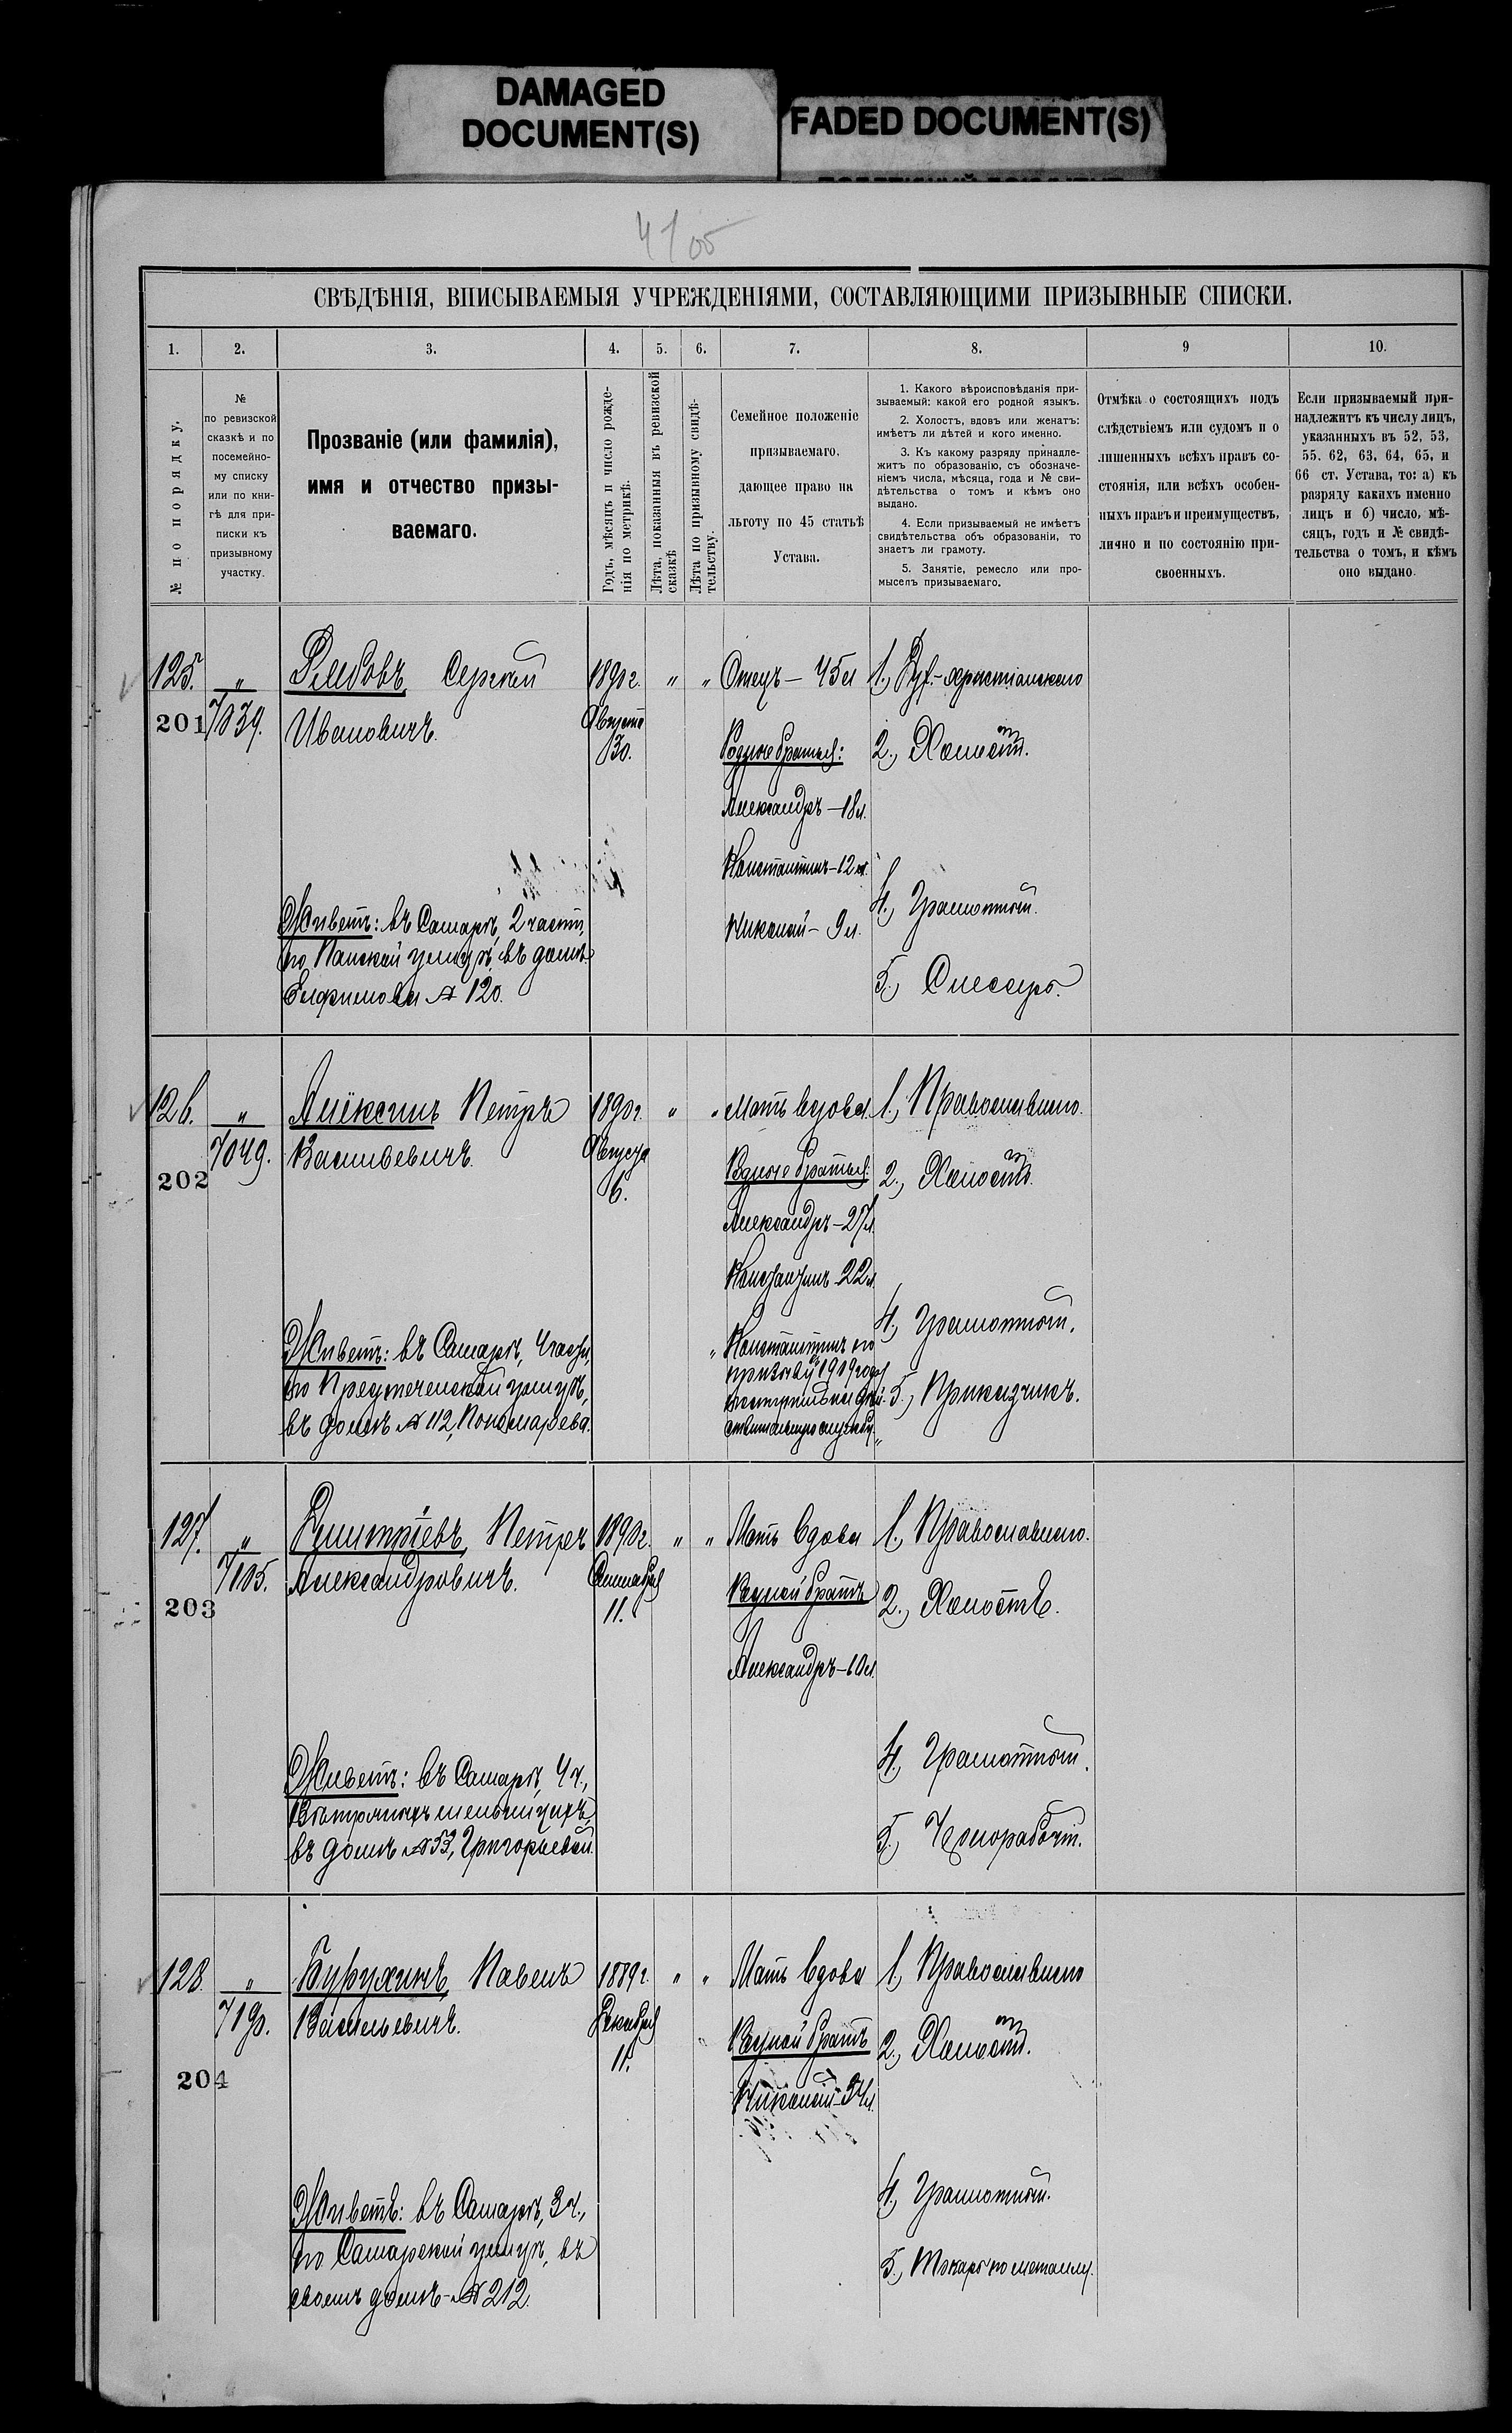 DAMAGED
DOCUMENT(S)
FADED DOCUMENT(S)
4/05
СВѢДѢНІЯ, ВПИСЫВАЕМЫЯ УЧРЕЖДЕНІЯМИ, СОСТАВЛЯЮЩИМИ ПРИЗЫВНЫЕ СПИСКИ.
1. 2. 3. 4. 5. 6. 7. 8. 9 10.
№ по порядку.
№
по ревизской
сказкѣ и по
посемейно-
му списку
или по кни-
гѣ для при-
писки къ
призывному
участку.
Прозваніе (или фамилія),
имя и отчество призы-
ваемаго.
Годъ, мѣсяцъ и число рожде-
нія по метрикѣ.
Лѣта, показанныя въ ревизской
сказкѣ
Лѣта по призывному свидѣ-
тельству.
Семейное положеніе
призываемаго,
дающее право на
льготу по 45 статьѣ
Устава.
1. Какого вѣроисповѣданія при-
зываемый; какой его родной языкъ.
2. Холостъ, вдовъ или женатъ;
имѣетъ ли дѣтей и кого именно.
3. Къ какому разряду принадле-
житъ по образованію, съ обозначе-
ніемъ числа, мѣсяца, года и № сви-
дѣтельства о томъ и кѣмъ оно
выдано.
4. Если призываемый не имѣетъ
свидѣтельства объ образованіи, то
знаетъ ли грамоту.
5. Занятіе, ремесло или про-
мыселъ призываемаго.
Отмѣка о состоящихъ подъ
слѣдствіемъ или судомъ и о
лишенныхъ всѣхъ правъ со-
стоянія, или всѣхъ особен-
ныхъ правъ и преимуществъ,
лично и по состоянію при-
своенныхъ.
Если призываемый при-
надлежитъ къ числу лицъ,
указанныхъ въ 52, 53,
55, 62, 63, 64, 65, и
66 ст. Устава, то: а) къ
разряду какихъ именно
лицъ и б) число, мѣ-
сяцъ, годъ и № свидѣ-
тельства о томъ, и кѣмъ
оно выдано.
125.
201
"
7039.
Сергей
Ивановичъ.
Живетъ: въ Самарѣ, 2 части,
по Панской улицѣ, въ домѣ
№ 120.
1890 г.
Августа
30.
" "
Отецъ – 45 л
Родные братья:
Александръ – 18 л.
Константинъ – 12 л.
Николай – 9 л.
1., христіанскаго
2., Холостъ.
4., Грамотный.
5., Слесарь.
126.
202
"
7049.
Алёксинъ Петръ
Васильевичъ.
Живетъ: въ Самарѣ, 4 части,
по Предтеченской улицѣ,
въ домѣ № 112, Пономарева.
1890 г.
Августа
6.
" "
Мать вдова.
Родные братья:
Александръ – 27 л.
Константинъ 22 л.
"Константинъ по
призыву 1909 года
поступилъ на дѣй-
ствительную службу."
1., Православнаго.
2., Холостъ.
4., Грамотный.
5., Приказчикъ.
127.
203
"
7105.
Дмитріевъ, Петръ
Александровичъ.
Живетъ: въ Самарѣ, 4 ч.,
Вѣтряныхъ мельницахъ,
въ домѣ № 53, Григорьевой.
1890 г.
Сентября
11.
" "
Мать вдова
Родной братъ
Александръ – 10 л.
1., Православнаго.
2., Холостъ.
4., Грамотный.
5., Чернорабочій.
128.
204
"
7190.
Бурухинъ, Павелъ
Васильевичъ.
Живетъ: въ Самарѣ, 3 ч.,
по Самарской улицѣ, въ
своемъ домѣ – № 212.
1889 г.
Декабря
11.
" "
Мать вдова
Родной братъ
Николай – 34 л.
1., Православнаго
2., Холостъ.
4., Грамотный.
5., Токарь по металлу.